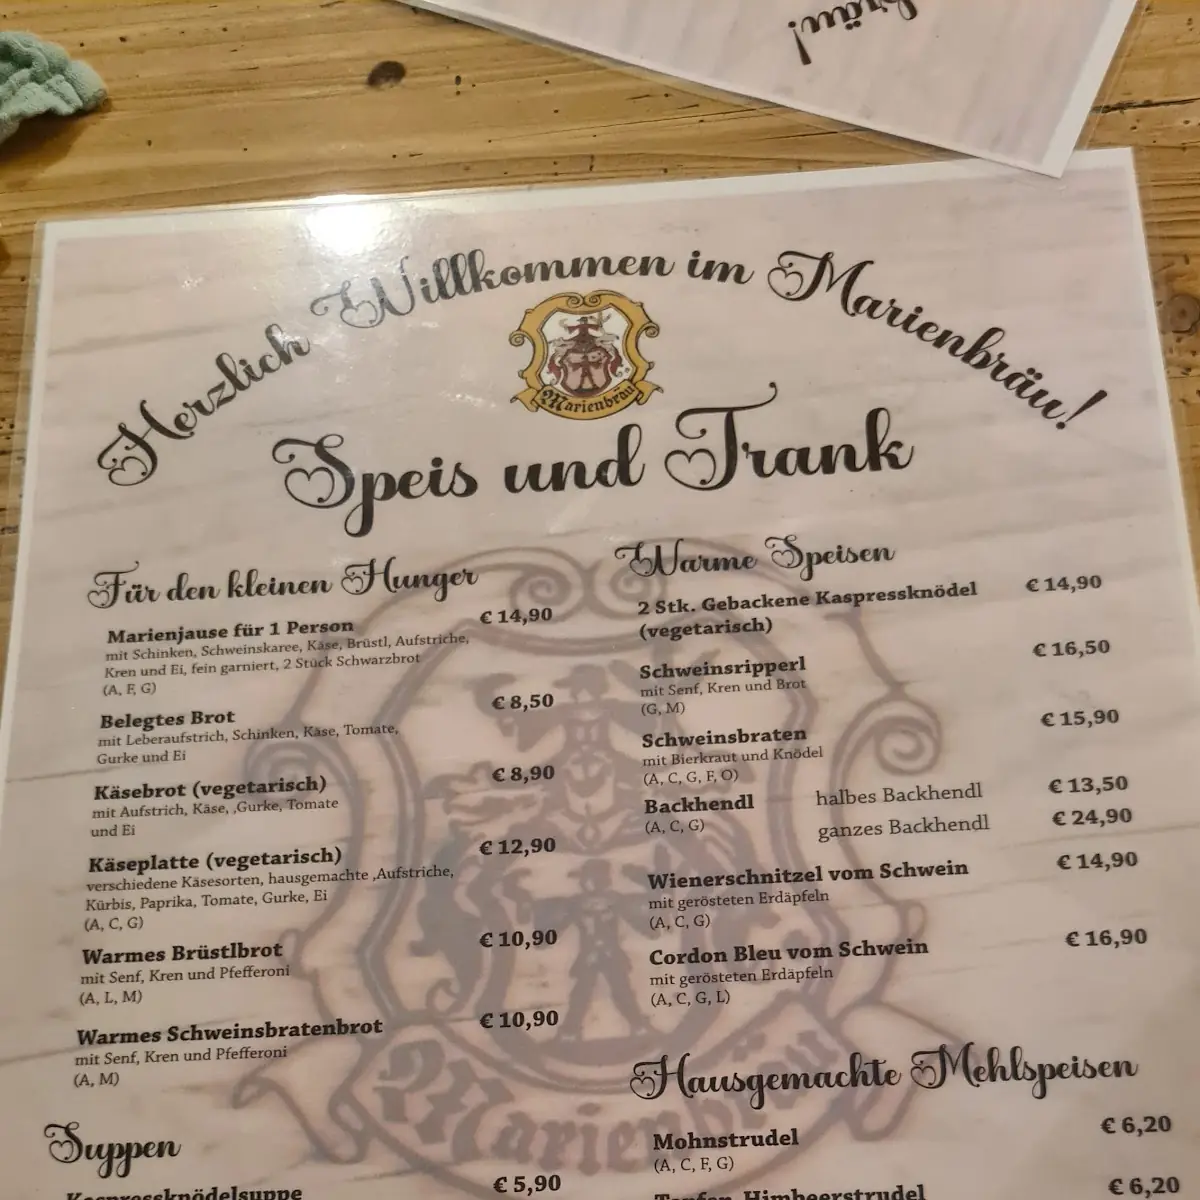 bräu!
Herzlich Willkommen im Marienbräu!
Marienbräu
Speis und Trank
Für den kleinen Hunger
Marienjause für 1 Person € 14,90
mit Schinken, Schweinskaree, Käse, Brüstl, Aufstriche,
Kren und Ei, fein garniert, 2 Stück Schwarzbrot
(A, F, G)
Belegtes Brot € 8,50
mit Leberaufstrich, Schinken, Käse, Tomate,
Gurke und Ei
Käsebrot (vegetarisch) € 8,90
mit Aufstrich, Käse, ,Gurke, Tomate
und Ei
Käseplatte (vegetarisch) € 12,90
verschiedene Käsesorten, hausgemachte ,Aufstriche,
Kürbis, Paprika, Tomate, Gurke, Ei
(A, C, G)
Warmes Brüstlbrot € 10,90
mit Senf, Kren und Pfefferoni
(A, L, M)
Warmes Schweinsbratenbrot € 10,90
mit Senf, Kren und Pfefferoni
(A, M)
Suppen
Kaspressknödelsuppe € 5,90
Warme Speisen
2 Stk. Gebackene Kaspressknödel € 14,90
(vegetarisch)
Schweinsripperl € 16,50
mit Senf, Kren und Brot
(G, M)
Schweinsbraten € 15,90
mit Bierkraut und Knödel
(A, C, G, F, O)
Backhendl halbes Backhendl € 13,50
(A, C, G) ganzes Backhendl € 24,90
Wienerschnitzel vom Schwein € 14,90
mit gerösteten Erdäpfeln
(A, C, G)
Cordon Bleu vom Schwein € 16,90
mit gerösteten Erdäpfeln
(A, C, G, L)
Hausgemachte Mehlspeisen
Mohnstrudel € 6,20
(A, C, F, G)
Topfen-Himbeerstrudel € 6,20
Marienbräu